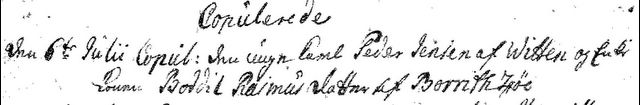 Copulerede
Den 6te Julii Copul: den ungn Karl Peder Jensen af Witten og Enke
Konen Boddil Rasmus datter af Borrith Høe